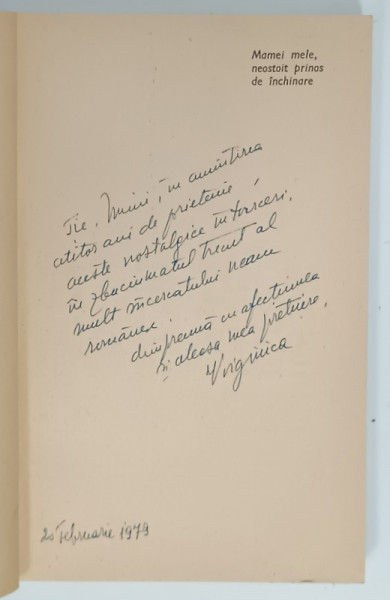 Mamei mele,
neostoit prinos
de închinare
Ție, Mimi, în amintirea
atîtor ani de prietenie,
aceste nostalgice întoarceri,
în zbuciumatul trecut al
mult încercatului neam
românesc.
dimpreună cu afecțiunea
și aleasa mea prețuire,
Virginica
20 Februarie 1979